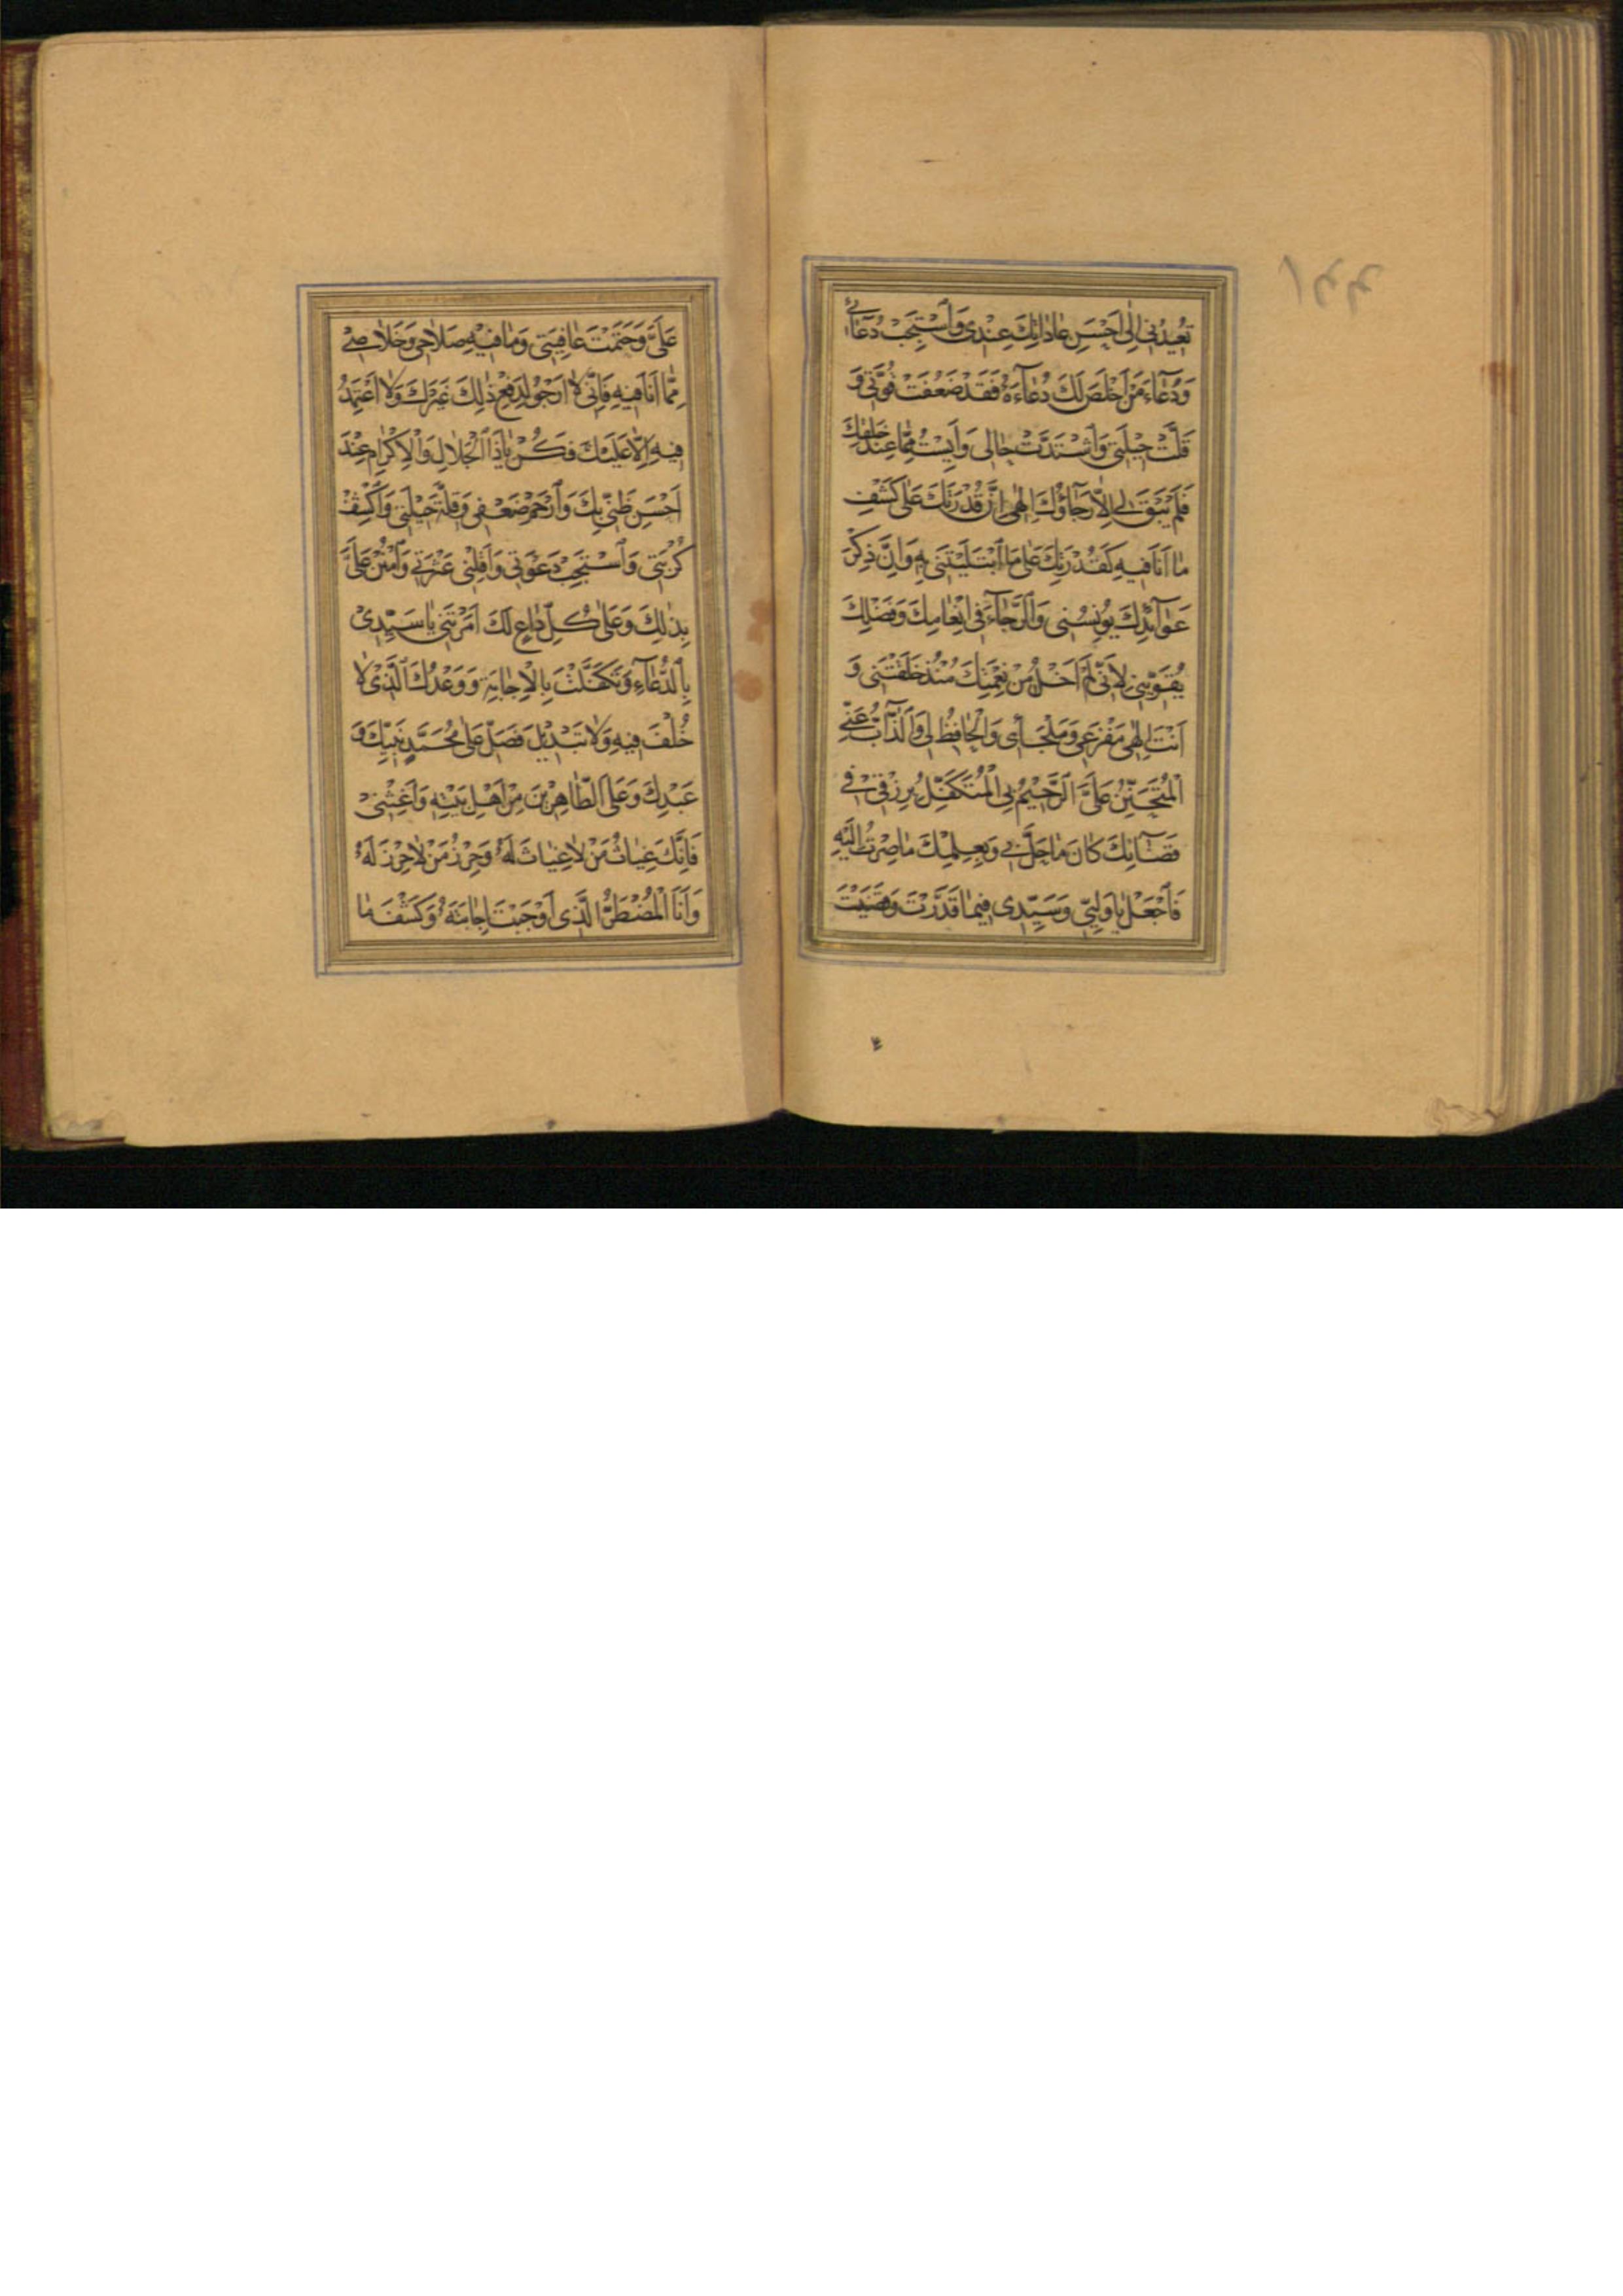 تُعِيدُنِي إِلٰى أَحْسَنِ عَادَاتِكَ عِنْدِي وَاسْتَجِبْ دُعَائِي
وَدُعَاءَ مَنْ أَخْلَصَ لَكَ دُعَاءَهُ فَقَدْ ضَعُفَتْ قُوَّتِي وَ
قَلَّتْ حِيْلَتِي وَاشْتَدَّتْ حَالِي وَأَيِسْتُ مِمَّا عِنْدَ خَلْقِكَ
فَلَمْ يَبْقَ لِي إِلَّا رَجَاؤُكَ إِلٰهِي إِنَّ قُدْرَتَكَ عَلٰى كَشْفِ
مَا أَنَا فِيهِ كَقُدْرَتِكَ عَلٰى مَا ابْتَلَيْتَنِي بِهِ وَإِنَّ ذِكْرَ
عَوَائِدِكَ يُونِسُنِي وَالرَّجَاءَ فِي إِنْعَامِكَ وَفَضْلِكَ
يُقَوِّينِي لِأَنِّي لَمْ أَخْلُ مِنْ نِعْمَتِكَ مُنْذُ خَلَقْتَنِي وَ
أَنْتَ إِلٰهِي مَفْزَعِي وَمَلْجَأِي وَالْحَافِظُ لِي وَالذَّابُّ عَنِّي
الْمُتَحَنِّنُ عَلَيَّ الرَّحِيْمُ بِي الْمُتَكَفِّلُ بِرِزْقِي فِي
قَضَائِكَ كَانَ مَا حَلَّ بِي وَبِعِلْمِكَ مَا صِرْتُ إِلَيْهِ
فَاجْعَلْ يَا وَلِيِّي وَسَيِّدِي فِيمَا قَدَّرْتَ وَقَضَيْتَ
عَلَيَّ وَحَتَمْتَ عَافِيَتِي وَمَا فِيْهِ صَلَاحِي وَخَلَاصِي
مِمَّا أَنَا فِيهِ فَإِنِّي لَا أَرْجُو لِدَفْعِ ذٰلِكَ غَيْرَكَ وَلَا أَعْتَمِدُ
فِيهِ إِلَّا عَلَيْكَ فَكُنْ يَا ذَا الْجَلَالِ وَالْإِكْرَامِ عِنْدَ
أَحْسَنِ ظَنِّي بِكَ وَارْحَمْ ضَعْفِي وَقِلَّةَ حِيْلَتِي وَاكْشِفْ
كُرْبَتِي وَاسْتَجِبْ دَعْوَتِي وَأَقِلْنِي عَثْرَتِي وَامْنُنْ عَلَيَّ
بِذٰلِكَ وَعَلٰى كُلِّ دَاعٍ لَكَ أَمَرْتَنِي يَا سَيِّدِي
بِالدُّعَاءِ وَتَكَفَّلْتَ بِالْإِجَابَةِ وَوَعْدُكَ الَّذِي لَا
خُلْفَ فِيهِ وَلَا تَبْدِيْلَ فَصَلِّ عَلٰى مُحَمَّدٍ نَبِيِّكَ وَ
عَبْدِكَ وَعَلَى الطَّاهِرِيْنَ مِنْ أَهْلِ بَيْتِهِ وَأَغِثْنِي
فَإِنَّكَ غِيَاثُ مَنْ لَا غِيَاثَ لَهُ وَحِرْزُ مَنْ لَا حِرْزَ لَهُ
وَأَنَا الْمُضْطَرُّ الَّذِي أَوْجَبْتَ إِجَابَتَهُ وَكَشْفَ مَا